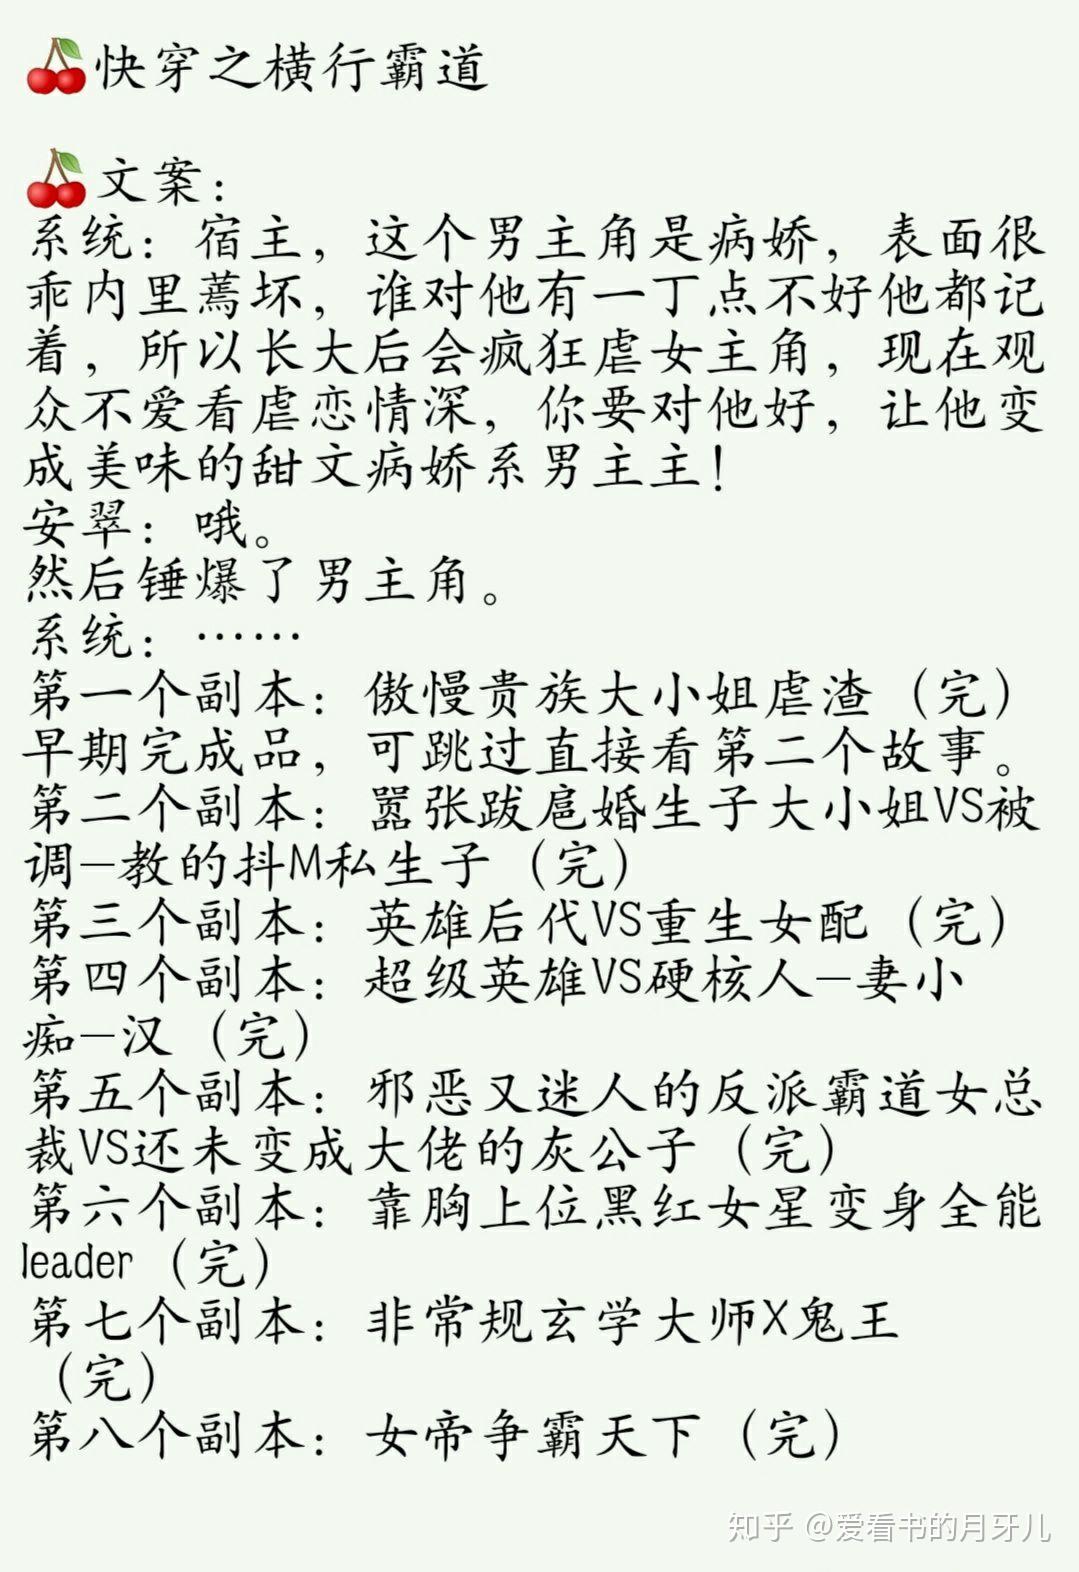 快穿之横行霸道
文案：
系统：宿主，这个男主角是病娇，表面很
乖内里蔫坏，谁对他有一丁点不好他都记
着，所以长大后会疯狂虐女主角，现在观
众不爱看虐恋情深，你要对他好，让他变
成美味的甜文病娇系男主主！
安翠：哦。
然后锤爆了男主角。
系统：……
第一个副本：傲慢贵族大小姐虐渣（完）
早期完成品，可跳过直接看第二个故事。
第二个副本：嚣张跋扈婚生子大小姐VS被
调—教的抖M私生子（完）
第三个副本：英雄后代VS重生女配（完）
第四个副本：超级英雄VS硬核人—妻小
痴—汉（完）
第五个副本：邪恶又迷人的反派霸道女总
裁VS还未变成大佬的灰公子（完）
第六个副本：靠胸上位黑红女星变身全能
leader（完）
第七个副本：非常规玄学大师X鬼王
（完）
第八个副本：女帝争霸天下（完）
知乎 @爱看书的月牙儿